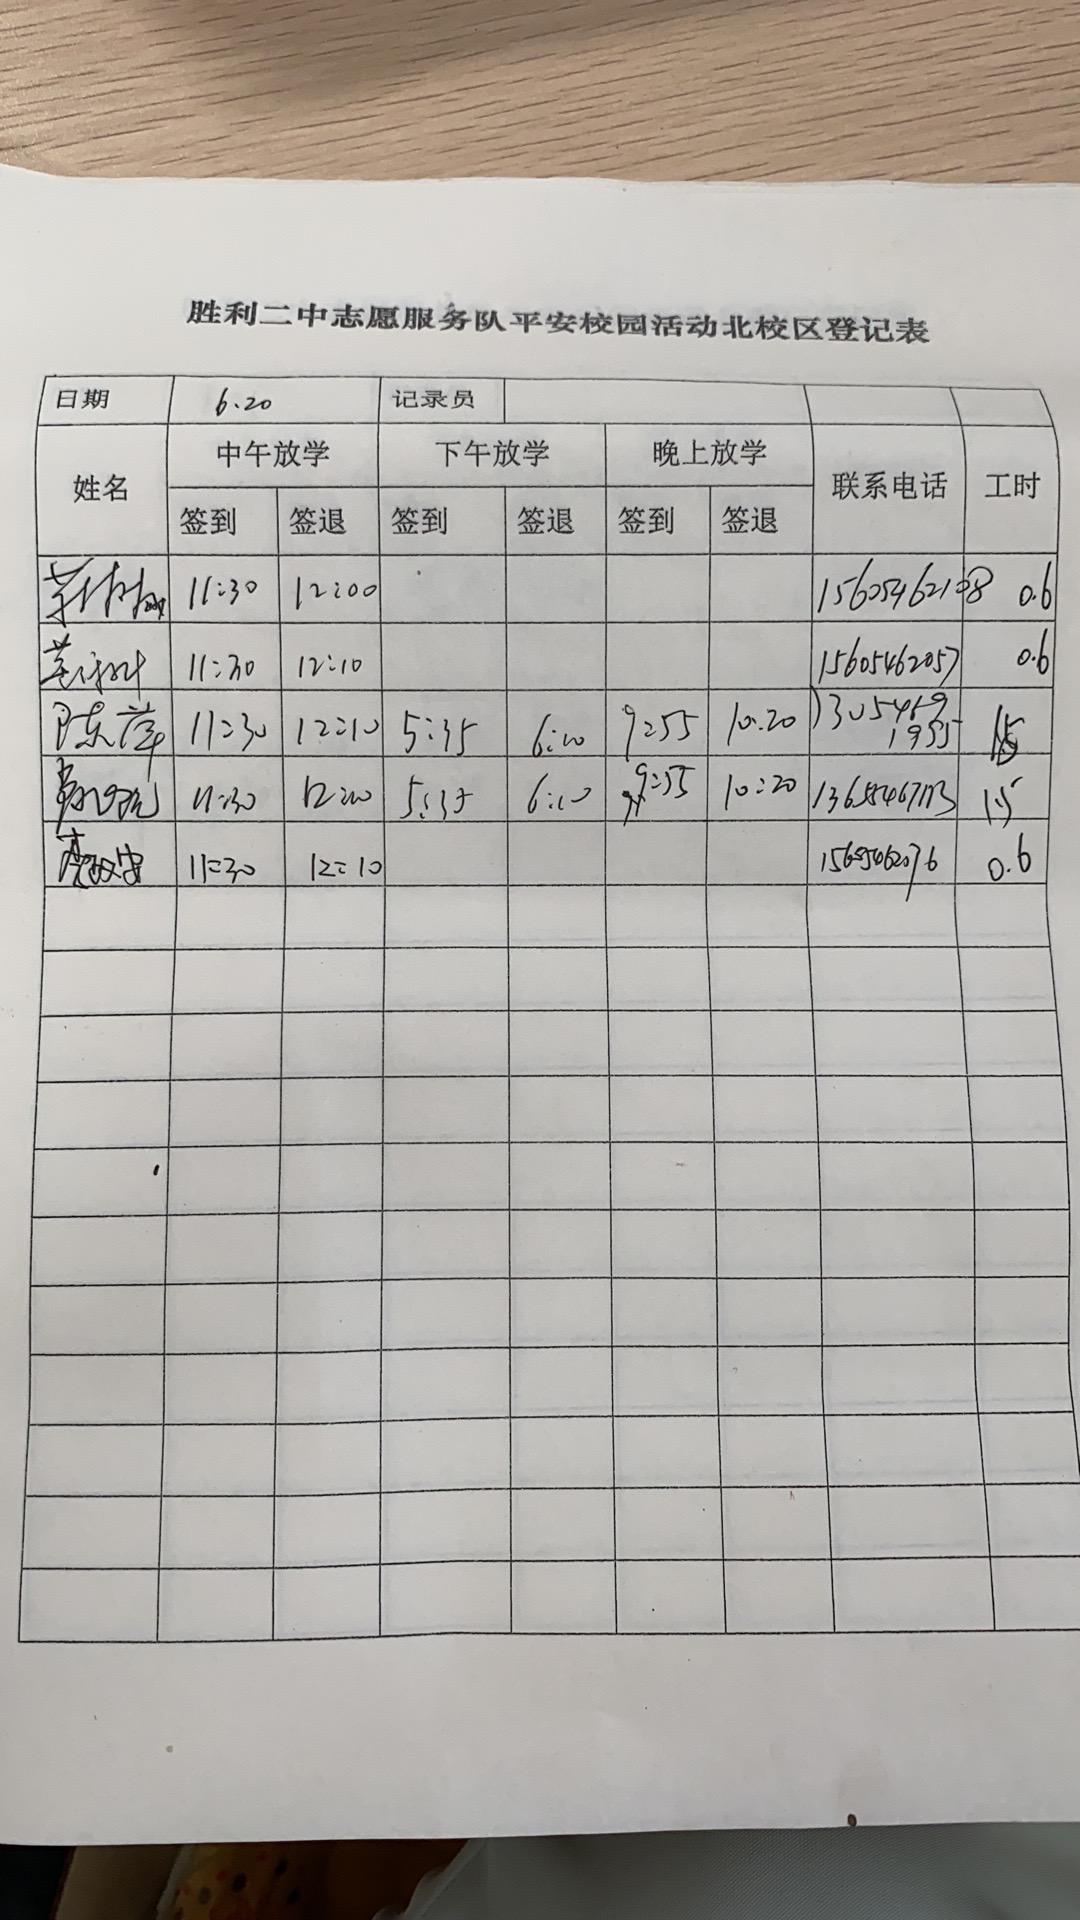 胜利二中志愿服务队平安校园活动北校区登记表
日期 6.20 记录员
姓名 中午放学 下午放学 晚上放学 联系电话 工时
签到 签退 签到 签退 签到 签退
11:30 12:00 15605462108 0.6
11:30 12:10 15605462057 0.6
陈萍 11:30 12:10 5:35 6:10 9:55 10:20 13054691955 1.5
11:30 12:10 5:35 6:10 9:55 10:20 1.5
11:30 12:10 15605462076 0.6